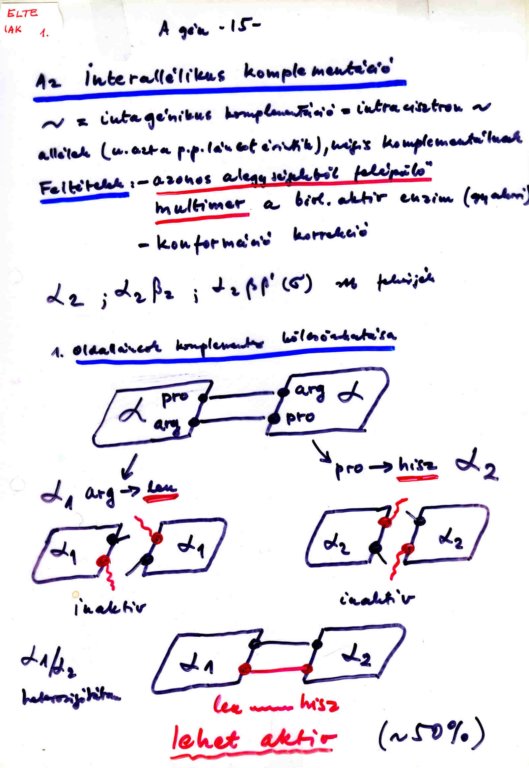 ELTE
IAK 1.
A gén -15-
Az interallélikus komplementáció
~ = intragénikus komplementáció = intracisztron ~
allélek (u.azt a p.p. láncot érintik), mégis komplementálnak
Feltételek: - azonos alegységekből felépülő
multimer a biol. aktiv enzim (gyakori)
- konformáció korrekció
α2 ; α2β2 ; α2ββ'(σ) fehérjék
1. Oldalláncok komplementer kölcsönhatása
α pro arg α
arg pro
α1 arg → leu
pro → hisz α2
α1 α1 α2 α2
inaktiv inaktiv
α1/α2 α1 α2
heterozigótában
leu hisz
lehet aktiv (~50%)